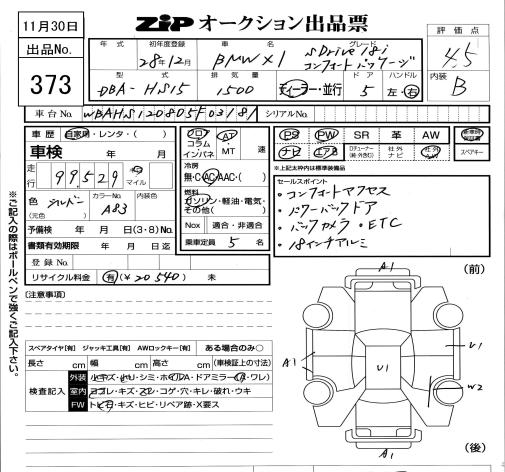 11月30日
ZIP オークション出品票
出品No.
373
年式
初年度登録
28年12月
車名
BMW X1
グレード
sDrive 18i
コンフォートパッケージ
評価点
4.5
型式
DBA-HS15
排気量
1500
ディーラー・並行
ドア
5
ハンドル
左・右
内装
B
車台No.
WBAHS120805F03181
シリアルNo.
車歴 自家用・レンタ・( )
車検 年 月
走行
99,529
マイル
色
シルバー
(元色)
カラーNo.
A83
内装色
予備検 年 月 日(3・8)No.
書類有効期限 年 月 日迄
登録No.
リサイクル料金 有(¥20540) 未
フロア
コラム
インパネ
AT
MT
速
冷房
無・C・AC・AAC・( )
燃料
ガソリン・軽油・電気・
その他( )
Nox 適合・非適合
乗車定員 5 名
PS PW SR 革 AW
ナビ エアB 社外ナビ 社外 スペアキー
※上記太枠内は標準装備品
セールスポイント
・コンフォートアクセス
・パワーバックドア
・バックカメラ・ETC
・18インチアルミ
※ご記入の際はボールペンで強くご記入下さい。
[注意事項]
スペアタイヤ[有] ジャッキ工具[有] AWロックキー[有] ある場合のみ○
長さ cm 幅 cm 高さ cm (車検証上の寸法)
検査記入
外装 小キズ・ヒリ・シミ・ホイルA・ドアミラー(A・ワレ)
室内 ヨゴレ・キズ・スレ・コゲ・穴・キレ・破れ・ウキ
FW トビ石・キズ・ヒビ・リペア跡・X要ス
A1
(前)
A1
U1
U1
W2
A1
(後)